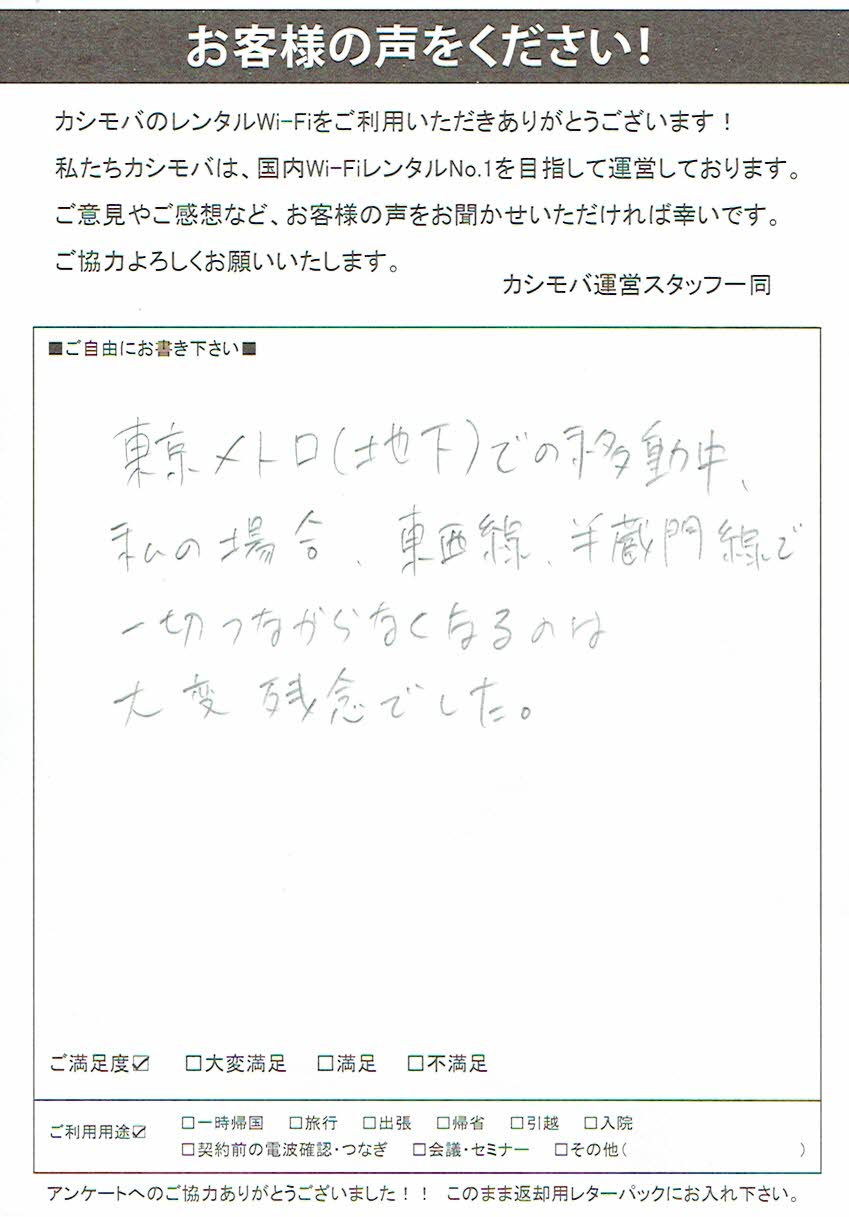 お客様の声をください!
カシモバのレンタルWi-Fiをご利用いただきありがとうございます！
私たちカシモバは、国内Wi-FiレンタルNo.1を目指して運営しております。
ご意見やご感想など、お客様の声をお聞かせいただければ幸いです。
ご協力よろしくお願いいたします。
カシモバ運営スタッフ一同
■ご自由にお書き下さい■
東京メトロ(地下)での移動中、
私の場合、東西線、半蔵門線で
一切つながらなくなるのは
大変残念でした。
ご満足度☑ □大変満足 □満足 □不満足
ご利用用途☑ □一時帰国 □旅行 □出張 □帰省 □引越 □入院
□契約前の電波確認・つなぎ □会議・セミナー □その他( )
アンケートへのご協力ありがとうございました！！ このまま返却用レターパックにお入れ下さい。